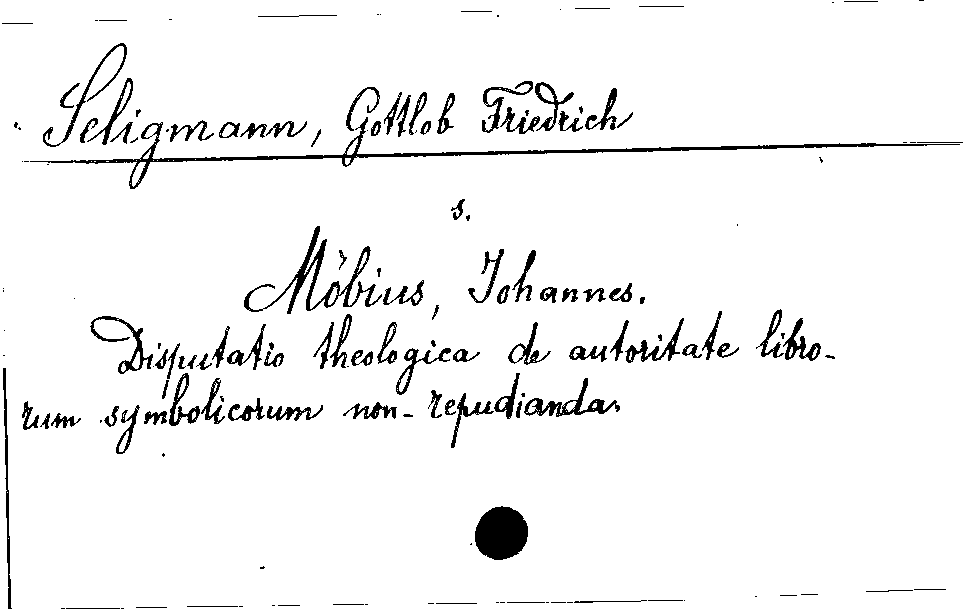 Seligmann, Gottlob Friedrich
s.
Möbius, Johannes.
Disputatio theologica de autoritate libro-
rum symbolicorum non-repudianda.